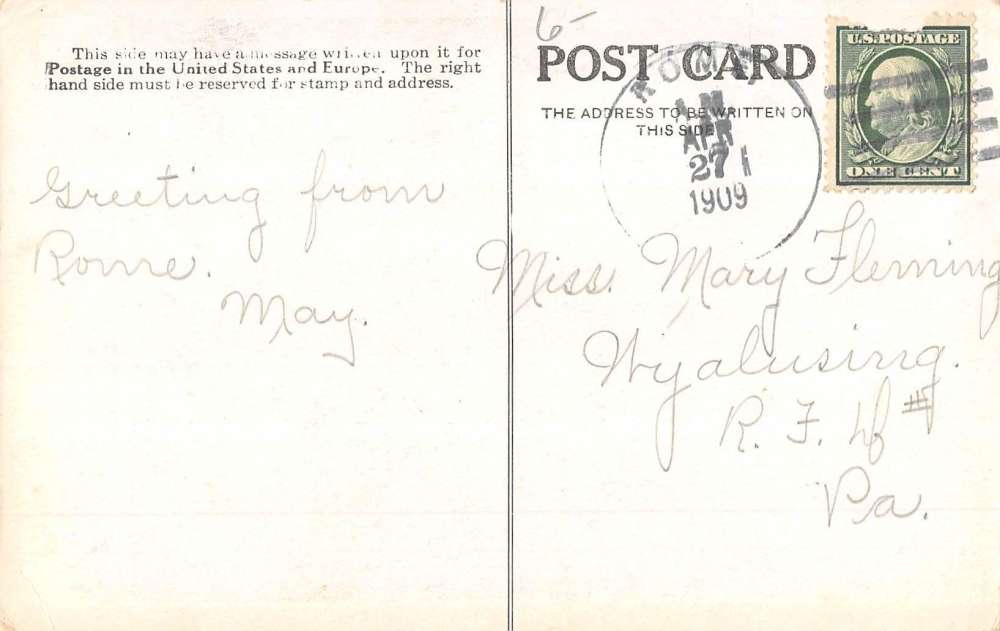 This side may have a message written upon it for
Postage in the United States and Europe. The right
hand side must be reserved for stamp and address.
Greeting from
Rome.
May.
6-
POST CARD
THE ADDRESS TO BE WRITTEN ON
THIS SIDE
ROME
AM
APR
27
1909
U.S. POSTAGE
ONE CENT
Miss. Mary Fleming
Wyalusing.
R. F. D #
Pa.